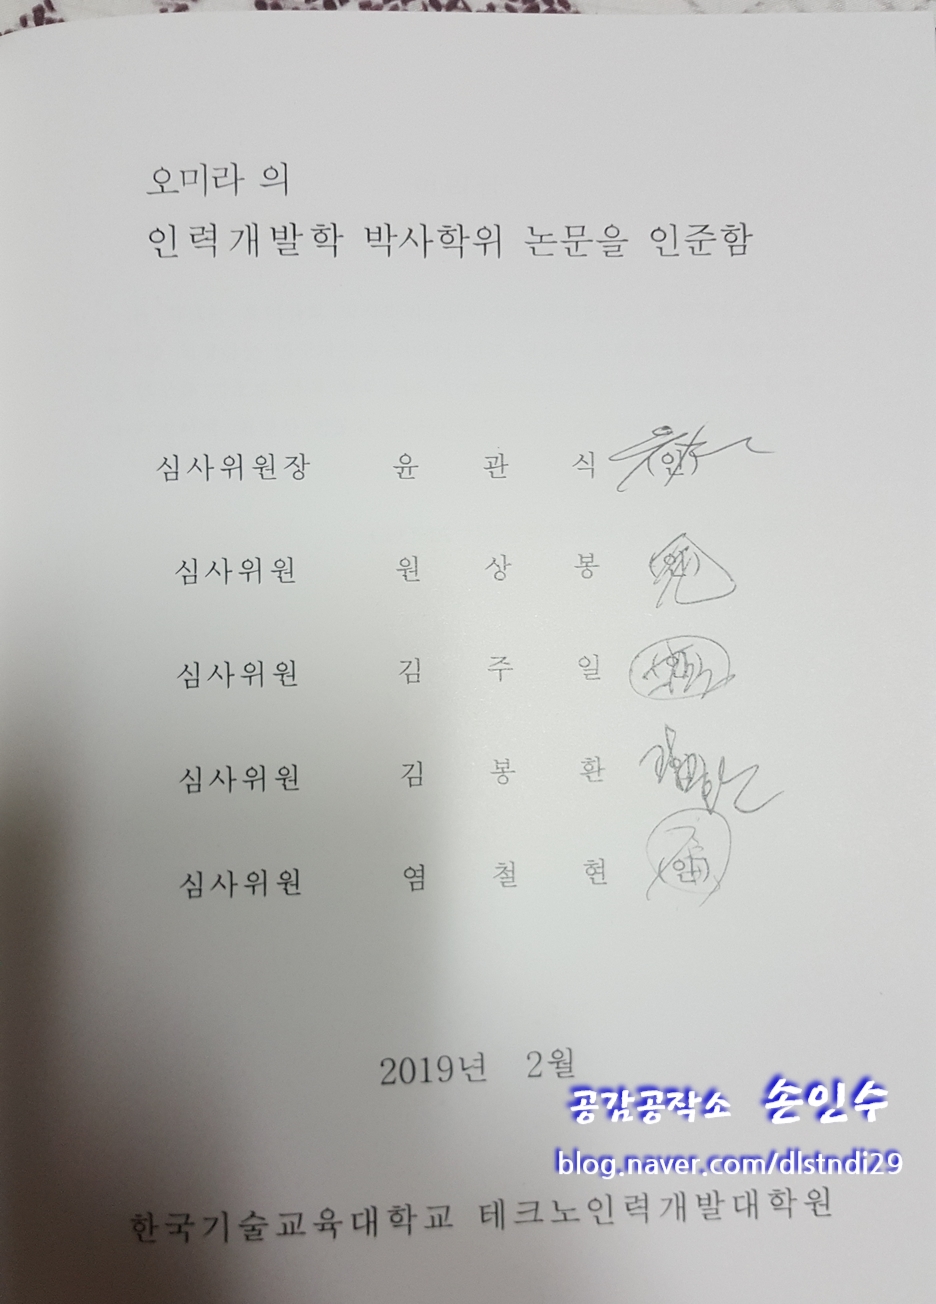 오미라 의
인력개발학 박사학위 논문을 인준함
심사위원장 윤 관 식 (인)
심사위원 원 상 봉 (인)
심사위원 김 주 일 (인)
심사위원 김 봉 환 (인)
심사위원 염 철 현 (인)
2019년 2월
공감공작소 손인수
blog.naver.com/dlstndi29
한국기술교육대학교 테크노인력개발대학원